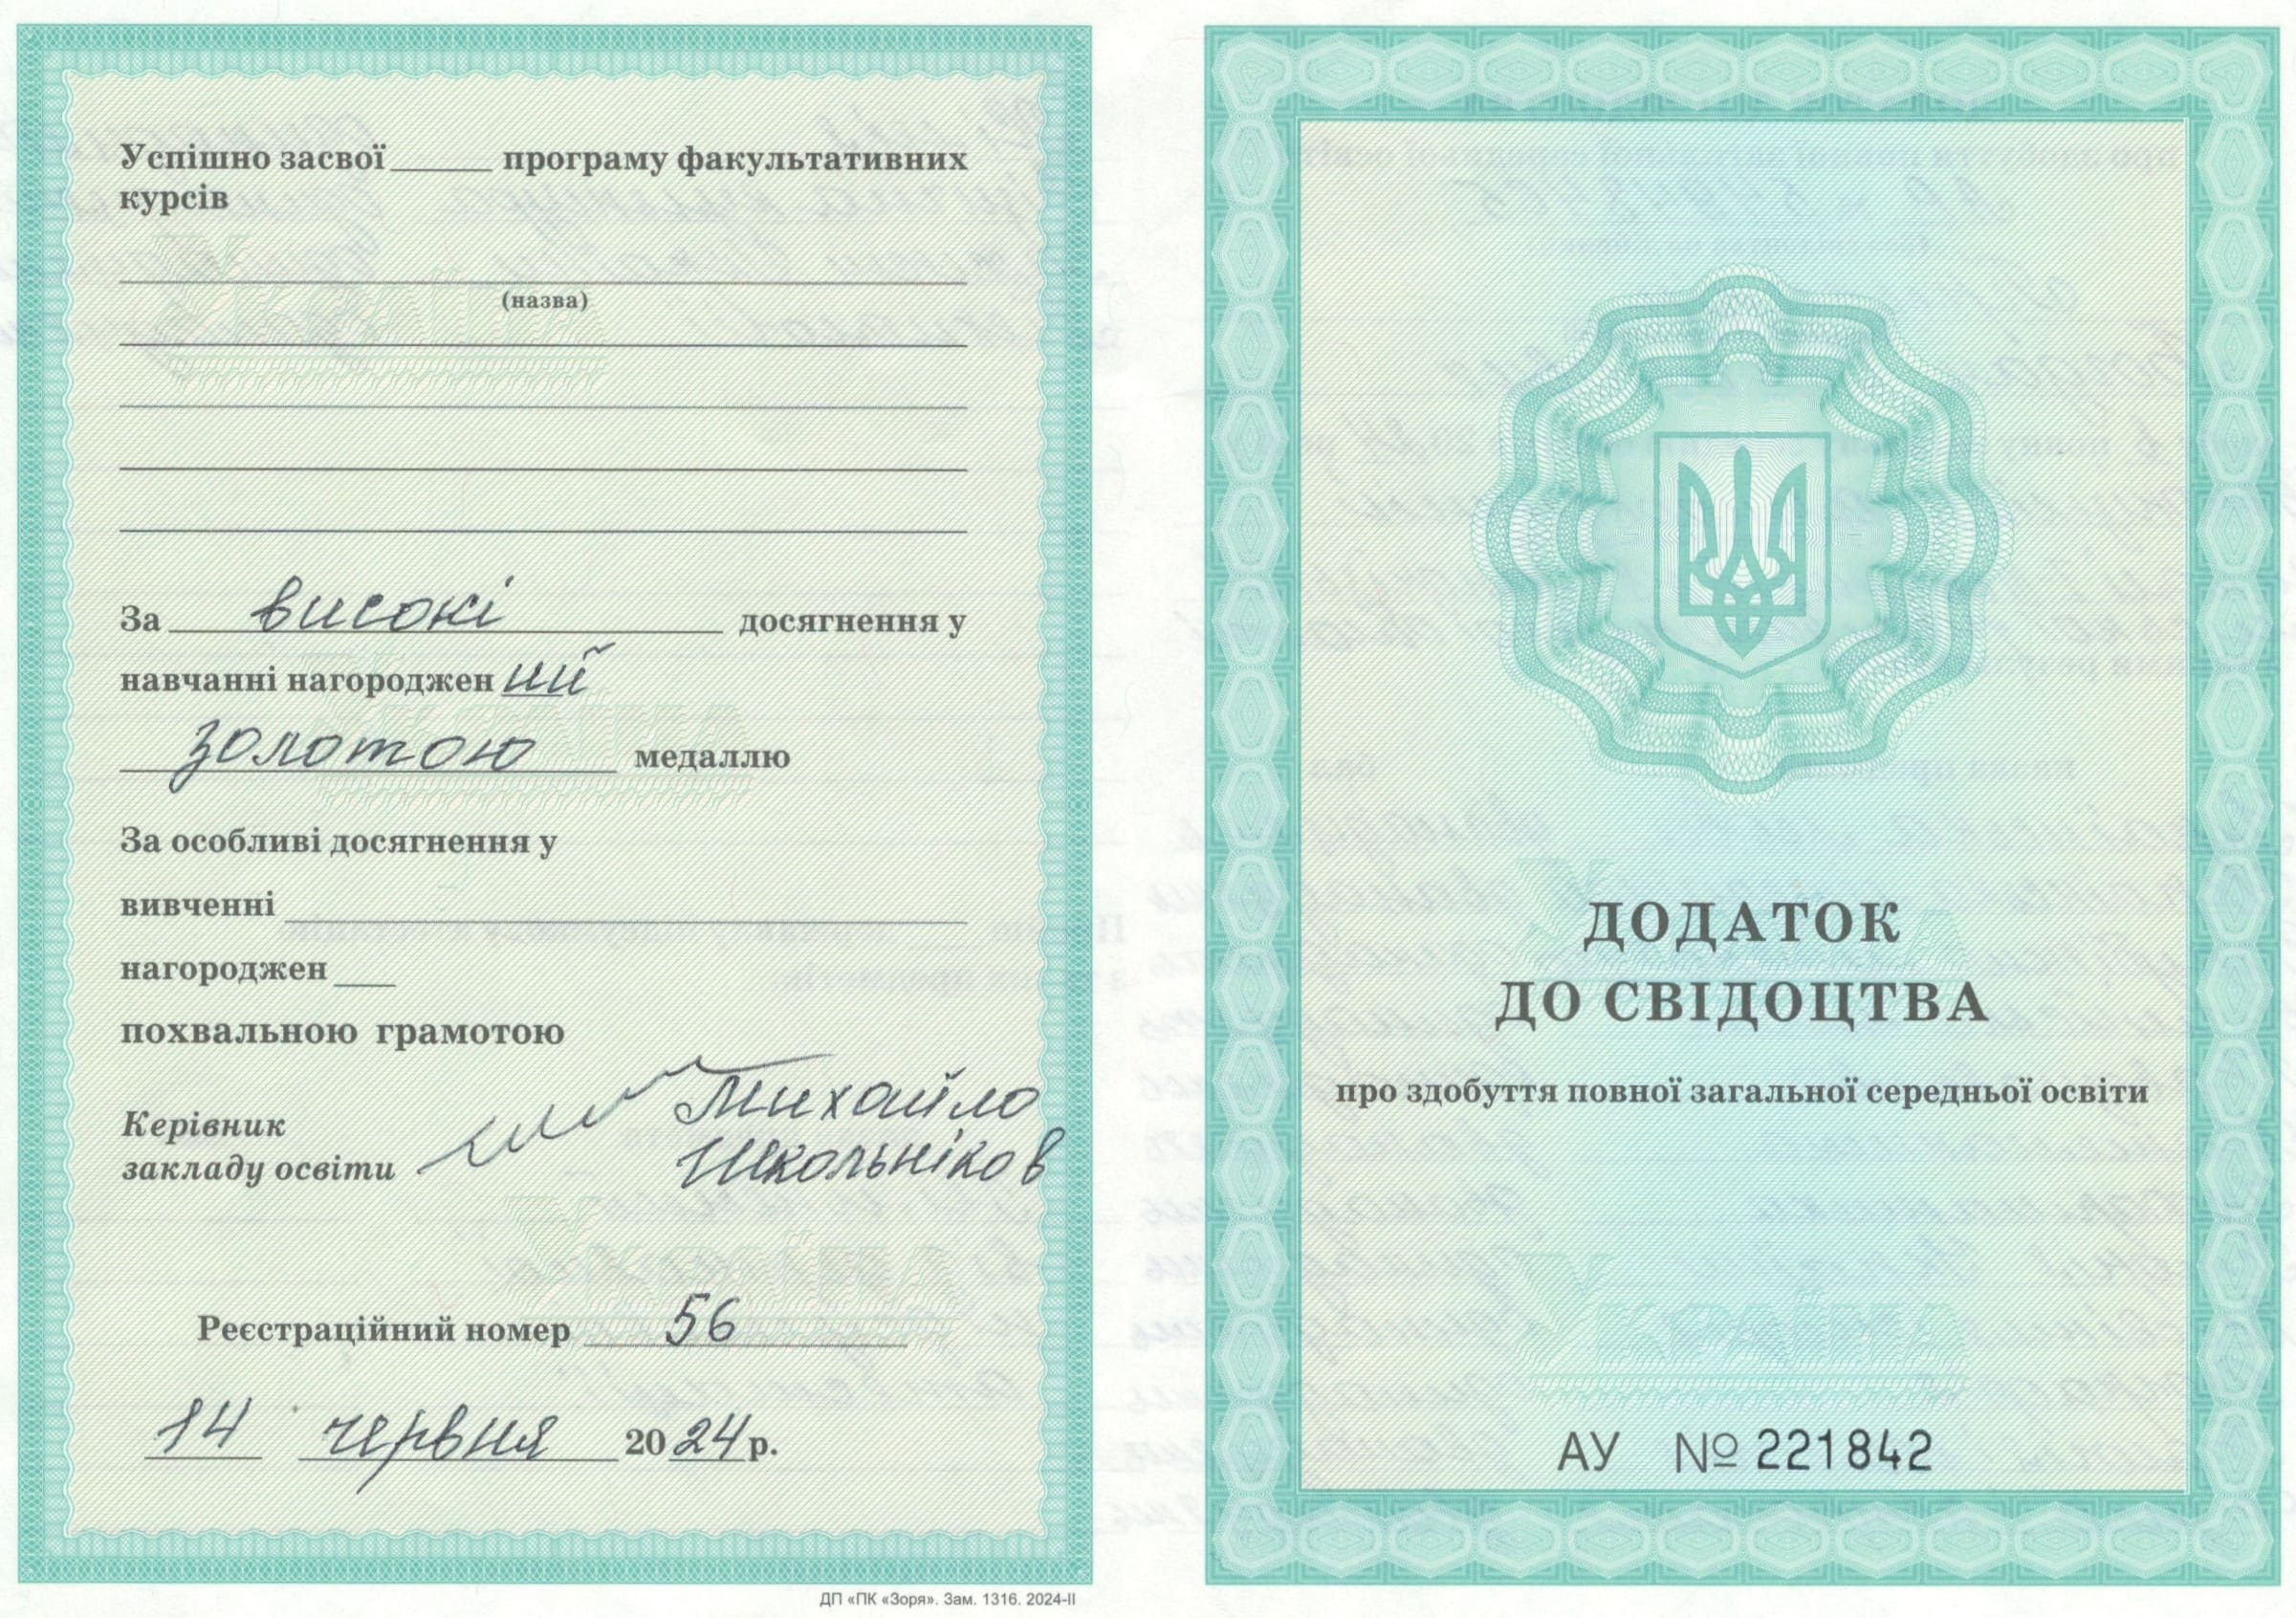 Успішно засвої_____ програму факультативних
курсів
(назва)
За високі досягнення у
навчанні нагороджен ий
золотою медаллю
За особливі досягнення у
вивченні
нагороджен ___
похвальною грамотою
Керівник Михайло
закладу освіти Школьніков
Реєстраційний номер 56
14 червня 2024 р.
ДП «ПК «Зоря». Зам. 1316. 2024-ІІ
ДОДАТОК
ДО СВІДОЦТВА
про здобуття повної загальної середньої освіти
Україна
АУ № 221842